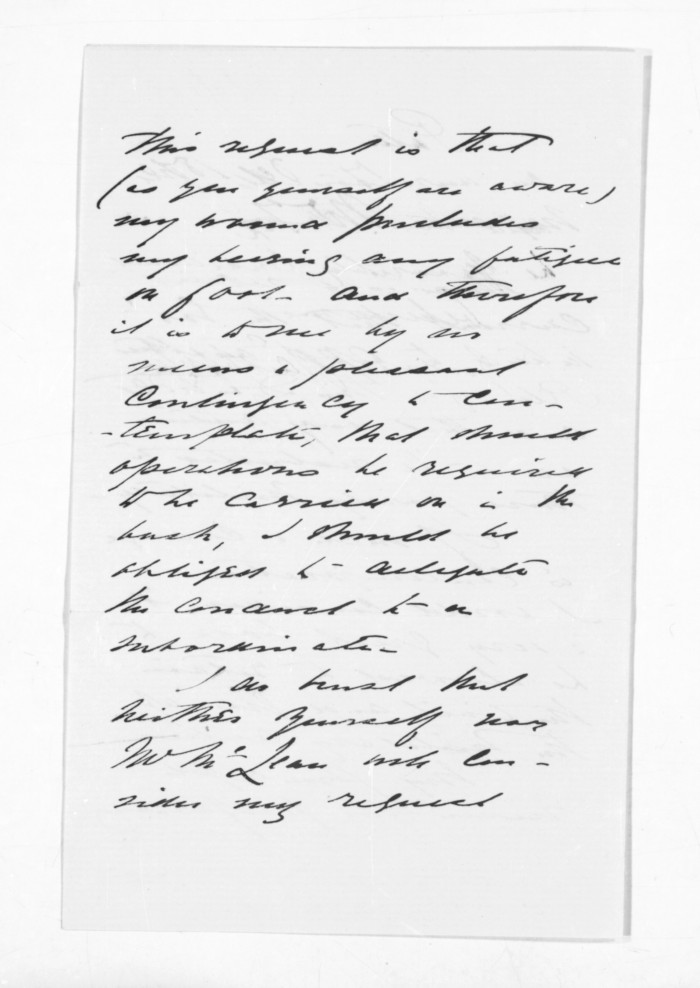 this request is that
(as you yourself are aware)
my wound precludes
my bearing any fatigue
on foot - and therefore
it is to me by no
means a pleasant
contingency to con-
-template, that should
operations be required
to be carried on in the
bush, I should be
obliged to delegate
the conduct to a
subordinate -
I do trust that
neither yourself nor
Mr McLean will con-
sider my request